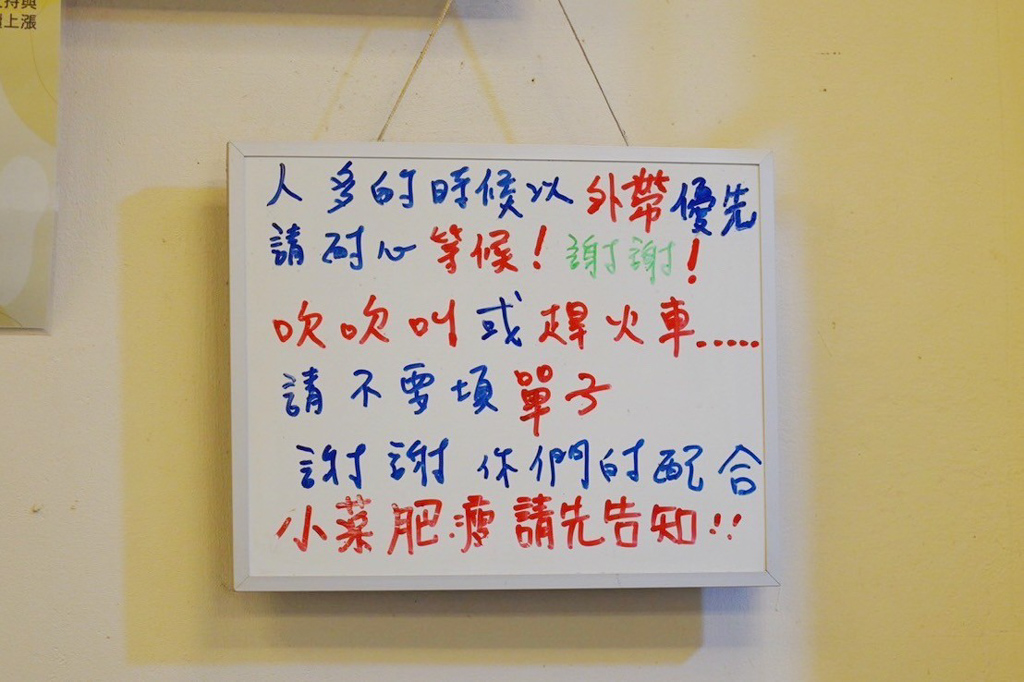 持與
上漲
人多的時候以外帶優先
請耐心等候！謝謝！
吹吹叫或趕火車.....
請不要填單子
謝謝你們的配合
小菜肥瘦請先告知!!